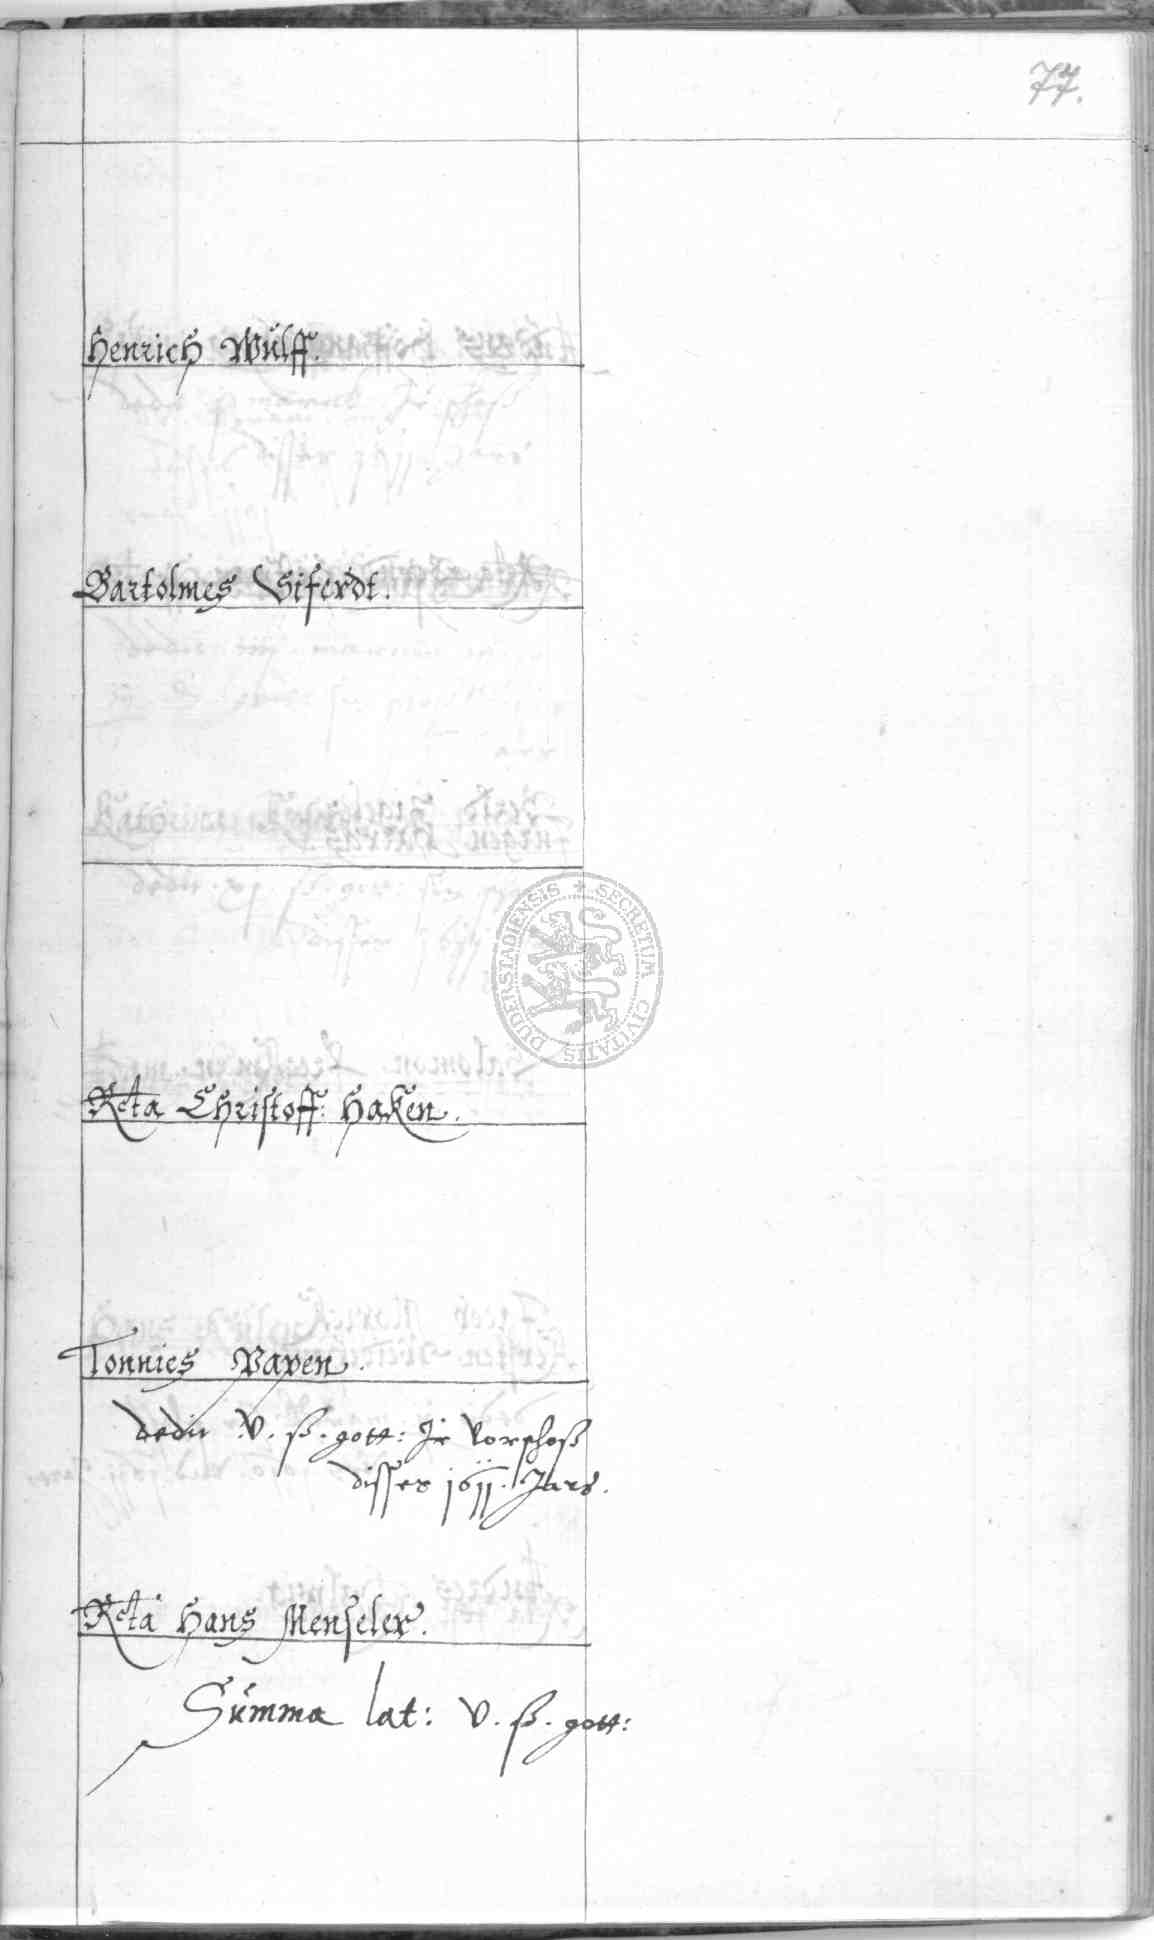 77.
Henrich Wulff.
Bartolmes Siferdt.
DUDERSTADIENSIS * SECRETUM CIVITATIS
Rcta Christoff: Haken.
Tonnies Papen.
dedit V. ß. gott: Ir Vorschoß
disser 1611. Jars.
Rcta Hans Menseler.
Summa lat: V. ß. gott: